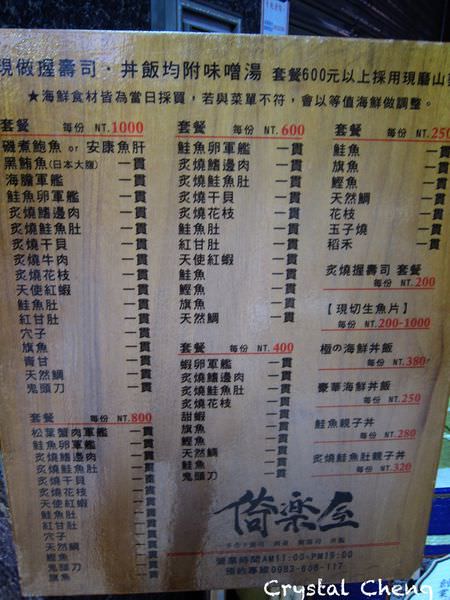 現做握壽司·丼飯均附味噌湯 套餐600元以上採用現磨山
★海鮮食材皆為當日採買，若與菜單不符，會以等值海鮮做調整。
套餐 每份 NT.1000
磯煮鮑魚 or 安康魚肝 一貫
黑鮪魚(日本大腹) 一貫
海膽軍艦 一貫
鮭魚卵軍艦 一貫
炙燒鰭邊肉 一貫
炙燒鮭魚肚 一貫
炙燒干貝 一貫
炙燒牛肉 一貫
炙燒花枝 一貫
天使紅蝦 一貫
鮭魚肚 一貫
紅甘肚 一貫
穴子 一貫
旗魚 一貫
青甘 一貫
天然鯛 一貫
鬼頭刀 一貫
套餐 每份 NT.800
松葉蟹肉軍艦 一貫
鮭魚卵軍艦 一貫
炙燒鰭邊肉 一貫
炙燒鮭魚肚 一貫
炙燒干貝 一貫
炙燒花枝 一貫
天使紅蝦 一貫
鮭魚肚 一貫
紅甘肚 一貫
穴子 一貫
天然鯛 一貫
鰹魚 一貫
鬼頭刀 一貫
旗魚 一貫
套餐 每份 NT.600
鮭魚卵軍艦 一貫
炙燒鰭邊肉 一貫
炙燒鮭魚肚 一貫
炙燒干貝 一貫
炙燒花枝 一貫
鮭魚肚 一貫
紅甘肚 一貫
天使紅蝦 一貫
鮭魚 一貫
鰹魚 一貫
旗魚 一貫
天然鯛 一貫
套餐 每份 NT.400
蝦卵軍艦 一貫
炙燒鰭邊肉 一貫
炙燒鮭魚肚 一貫
炙燒花枝 一貫
甜蝦 一貫
旗魚 一貫
鰹魚 一貫
天然鯛 一貫
鮭魚 一貫
鬼頭刀 一貫
套餐 每份 NT.250
鮭魚 一貫
旗魚 一貫
鰹魚 一貫
天然鯛 一貫
花枝 一貫
玉子燒 一貫
稻禾 一貫
炙燒握壽司 套餐
每份 NT.200
【現切生魚片】
每份 NT.200-1000
極の海鮮丼飯
每份 NT.380
豪華海鮮丼飯
每份 NT.250
鮭魚親子丼
每份 NT.280
炙燒鮭魚肚親子丼
每份 NT.320
倚楽屋
營業時間AM11:00-PM19:00
預約專線0982-608-117
Crystal Cheng